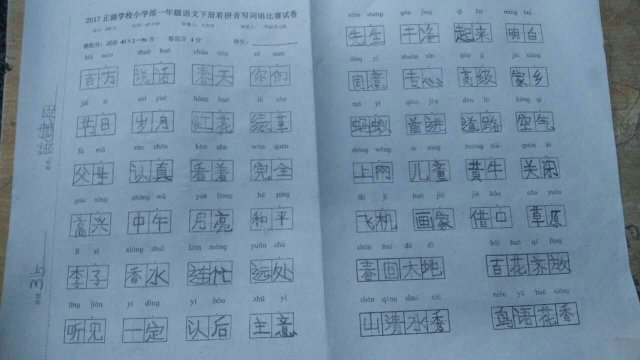 2017正源学校小学部一年级语文下册看拼音写词语比赛试卷
题配分：词语 46×2=96分 卷面分 4分 得分：
bǎi wàn shuō huà chūn tiān nǐ men
百万 说话 春天 你们
jié rì suì yuè hóng huā lǜ cǎo
节日 岁月 红花 绿草
fù mǔ rèn zhēn kàn zhe wán quán
父母 认真 看着 完全
gāo xìng zhōng wǔ yuè liàng hé píng
高兴 中午 月亮 和平
lǐ zi xiāng shuǐ lián máng yuǎn chù
李子 香水 连忙 远处
tīng jiàn yī dìng yǐ hòu zhǔ yì
听见 一定 以后 主意
xiān sheng gān jìng qǐ lái míng bai
先生 干净 起来 明白
zhōu yì zhuān xīn gāo jí jiā xiāng
周意 专心 高级 家乡
mǎ yǐ qián jìn dào lù kōng qì
蚂蚁 前进 道路 空气
shàng wǎng ér tóng huáng niú guān bì
上网 儿童 黄牛 关闭
fēi jī huà jiā jiè kǒu cǎo yuán
飞机 画家 借口 草原
chūn huí dà dì bǎi huā qí fàng
春回大地 百花齐放
shān qīng shuǐ xiù niǎo yǔ huā xiāng
山清水秀 鸟语花香